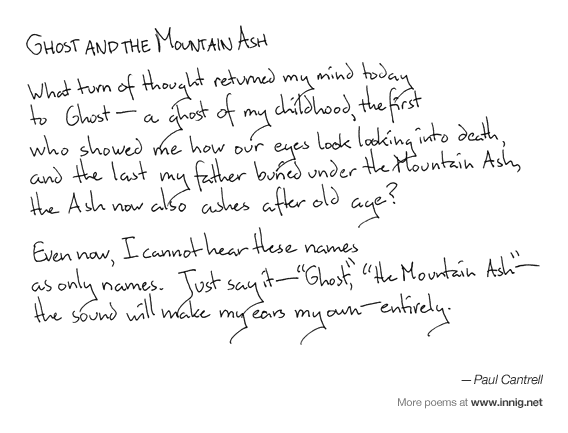 Ghost and the Mountain Ash
What turn of thought returned my mind today
to Ghost — a ghost of my childhood, the first
who showed me how our eyes look looking into death,
and the last my father buried under the Mountain Ash,
the Ash now also ashes after old age?
Even now, I cannot hear these names
as only names. Just say it — “Ghost,” “the Mountain Ash” —
the sound will make my ears my own — entirely.
— Paul Cantrell
More poems at www.innig.net